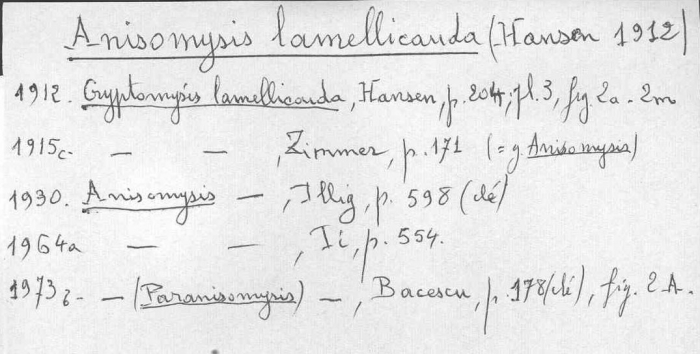 Anisomysis lamellicauda (Hansen 1912)
1912. Cryptomysis lamellicauda, Hansen, p. 204; pl. 3, fig 2a - 2m
1915c - — — , Zimmer, p. 171 (= g Anisomysis)
1930. Anisomysis — , Illig, p. 598 (clé)
1964a — — , Ii, p. 554.
1973b - — (Paranisomysis) — , Bacescu, p. 178 (clé), fig. 2-A.